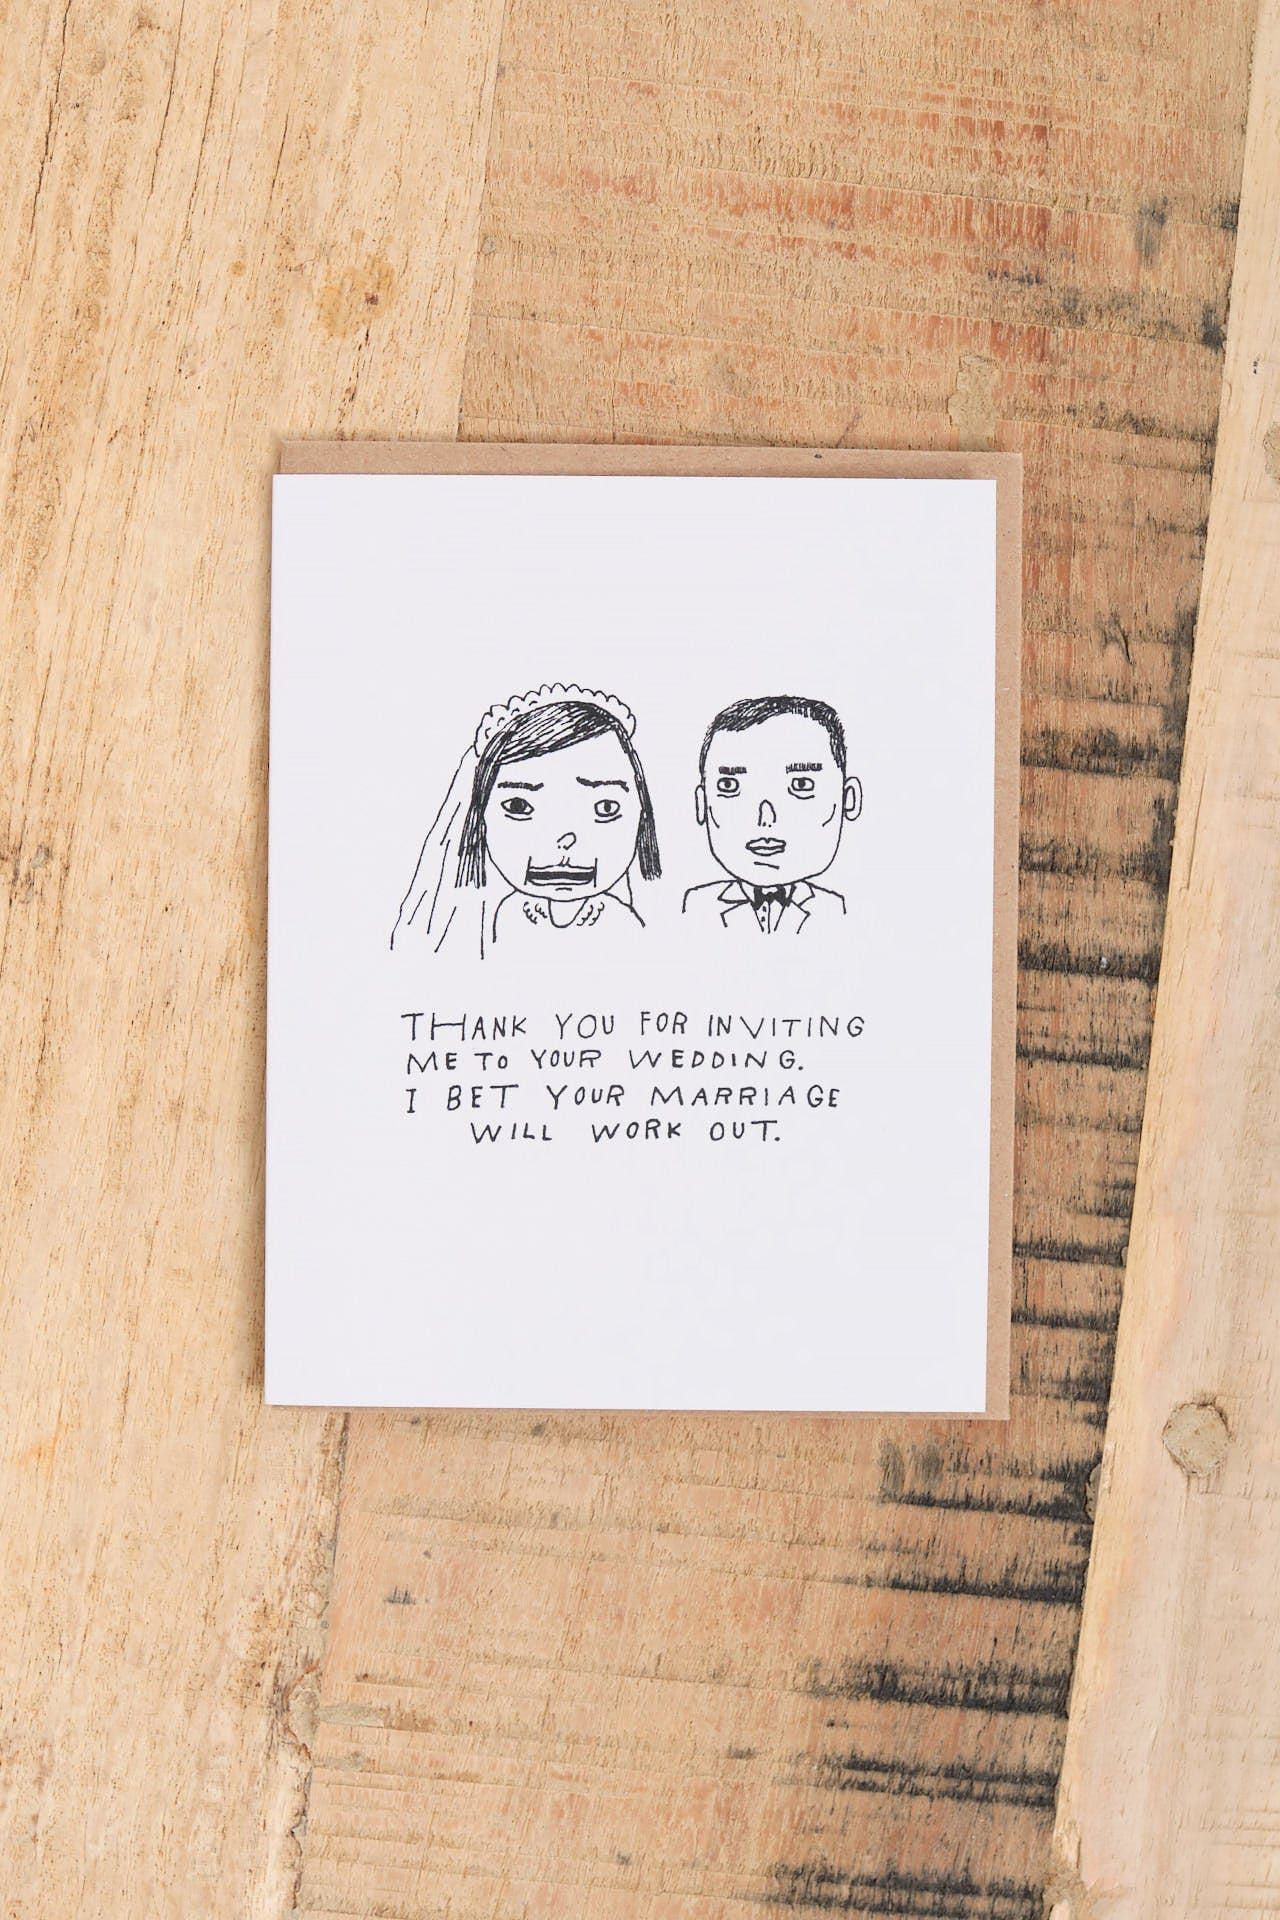 THANK YOU FOR INVITING
ME TO YOUR WEDDING.
I BET YOUR MARRIAGE
WILL WORK OUT.